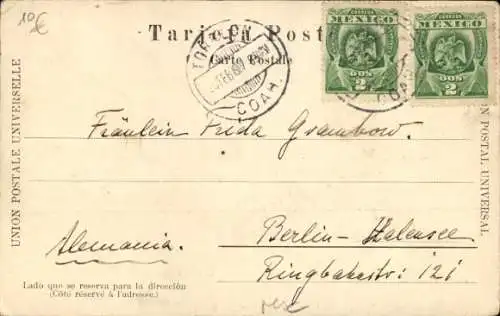 10 €
Tarjeta Post
Carte Postale
TOR
FEB
COAH.
CORREOS
MEXICO
2 DOS. 2
CORREOS
MEXICO
2 DOS. 2
COAH
UNION POSTALE UNIVERSELLE
Fräulein Frida Grambow.
Alemania.
Berlin-Halensee
Ringbahnstr. 121
Lado que se reserva para la dirección
(Côté réservé à l'adresse.)